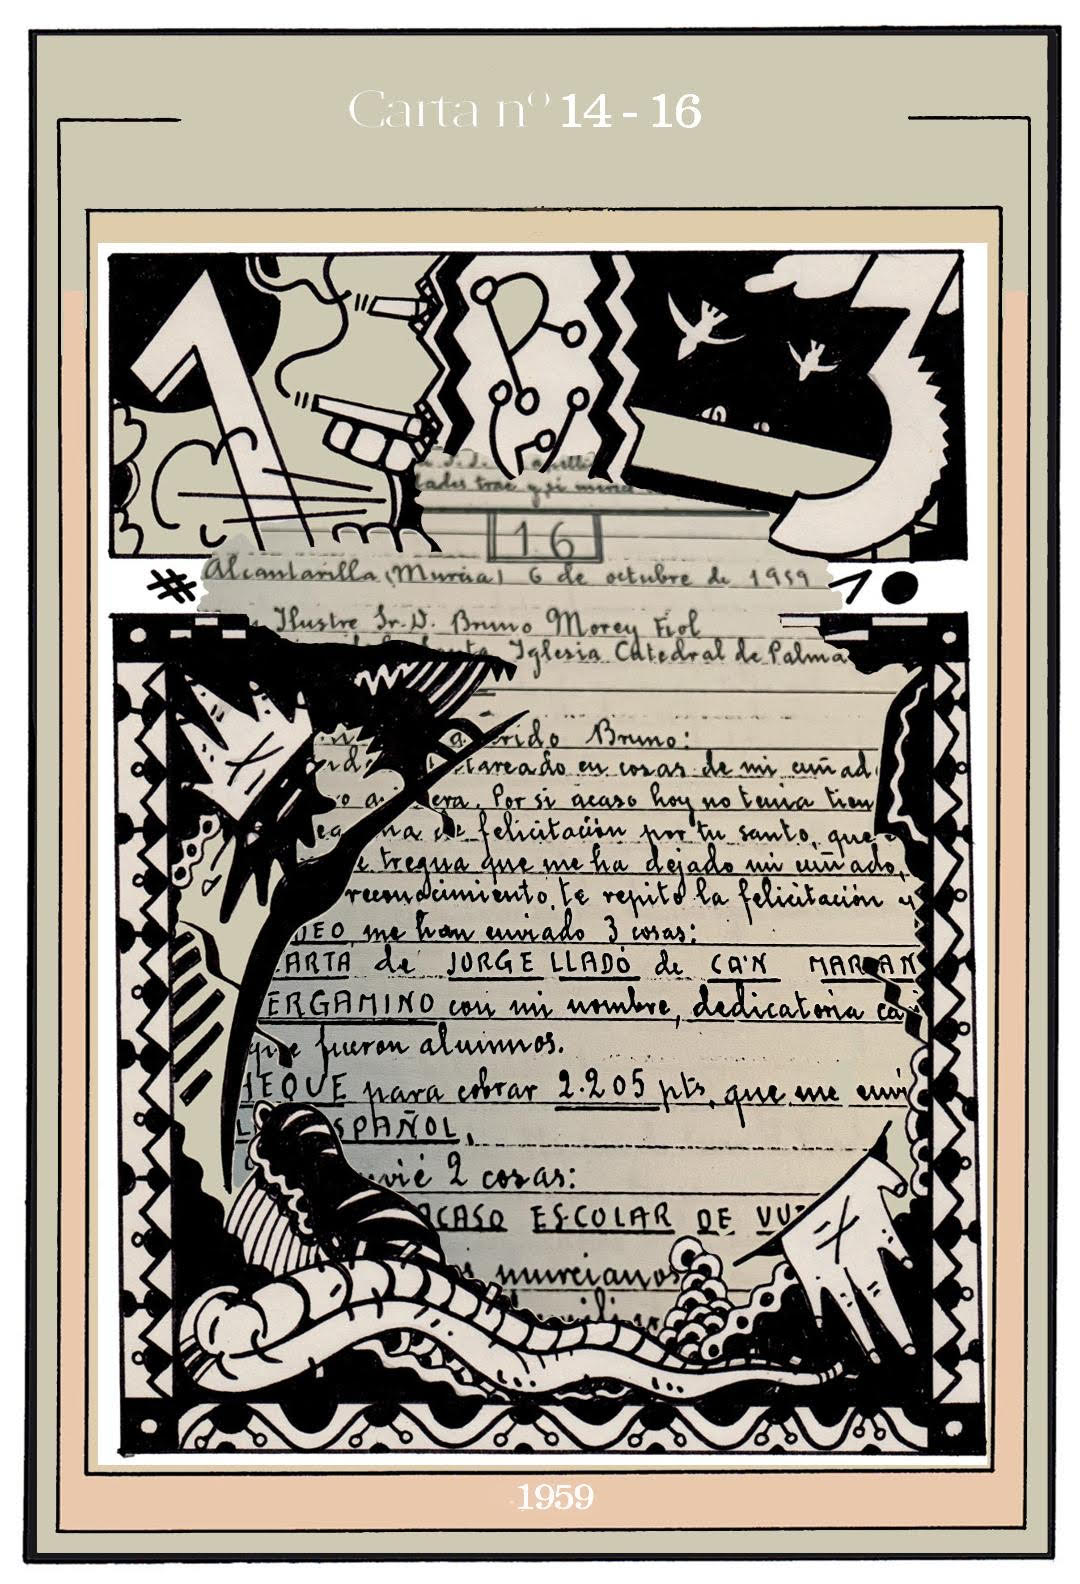 Carta nº 14 - 16
lades trae y si
16
Alcantarilla (Murcia) 6 de octubre de 1959
# 1
Ilustre Sr. D. Bruno Morey Fiol
Iglesia Catedral de Palma
rido Bruno:
tareado en cosas de mi cuñad
era. Por si acaso hoy no tenia tiem
na de felicitación por tu santo, que
e tregua que me ha dejado mi cuñado,
reconocimiento, te repito la felicitación y
DEO, me han enviado 3 cosas:
ARTA de JORGE LLADÓ de CA'N MARIAN
ERGAMINO con mi nombre, dedicatoria
que fueron alumnos.
HEQUE para cobrar 2.205 pts, que me envi
SPAÑOL,
vié 2 cosas:
ACASO ESCOLAR DE VU
murcianos
1959